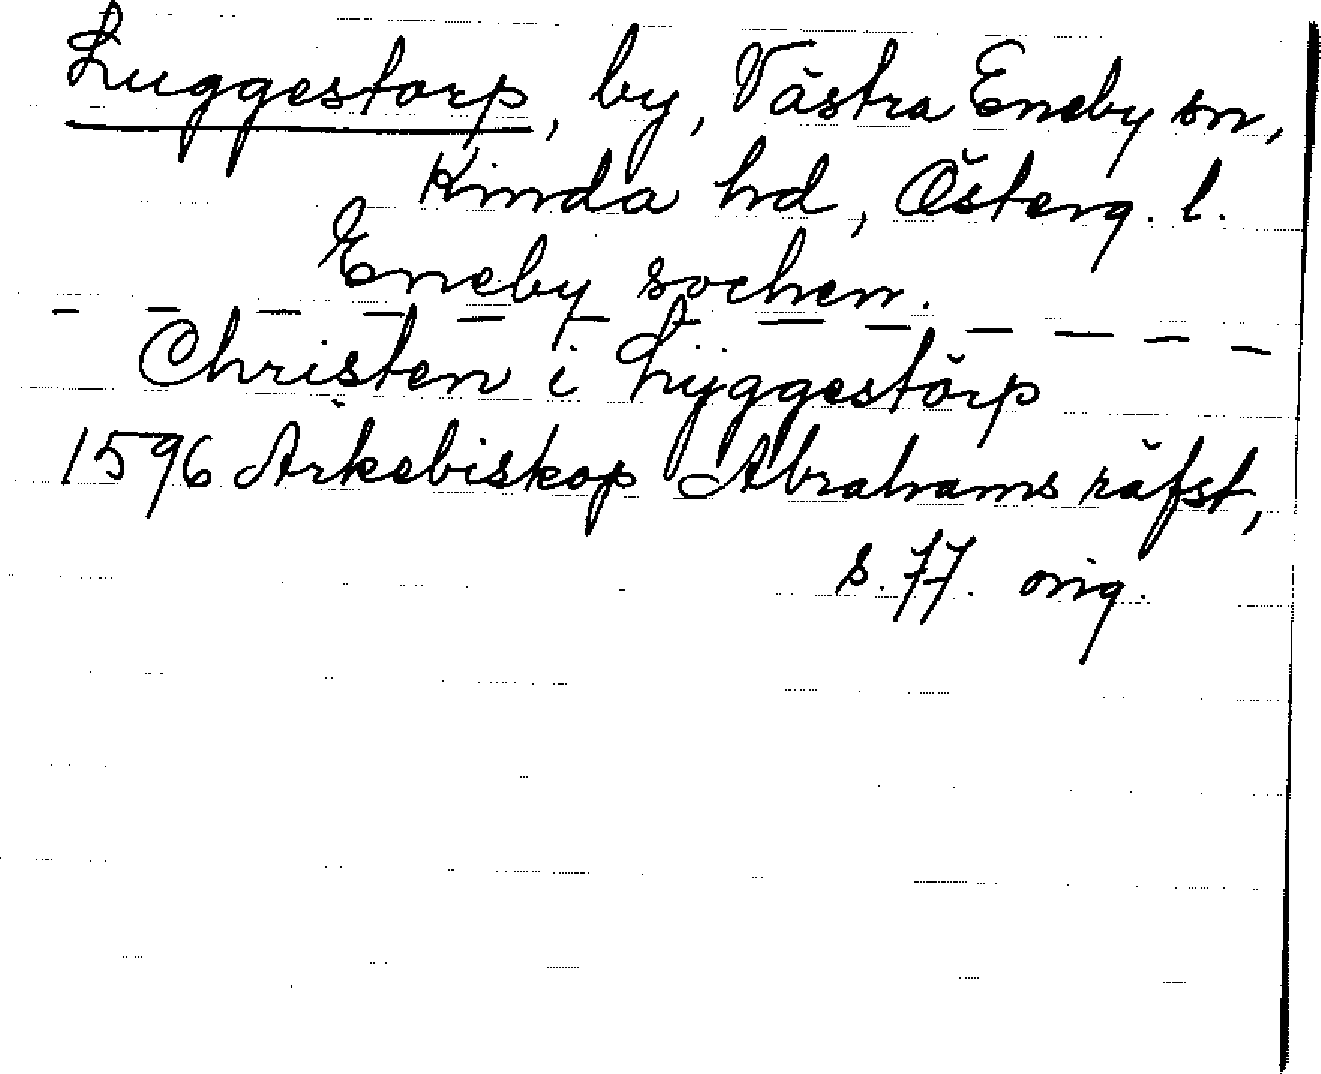 Luggestorp, by, Västra Eneby sn,
Kinda hd, Österg. l.
Eneby sochen.
Christen i Lÿggestörp
1596 Ärkebiskop Abrahams räfst,
s. 77. orig.